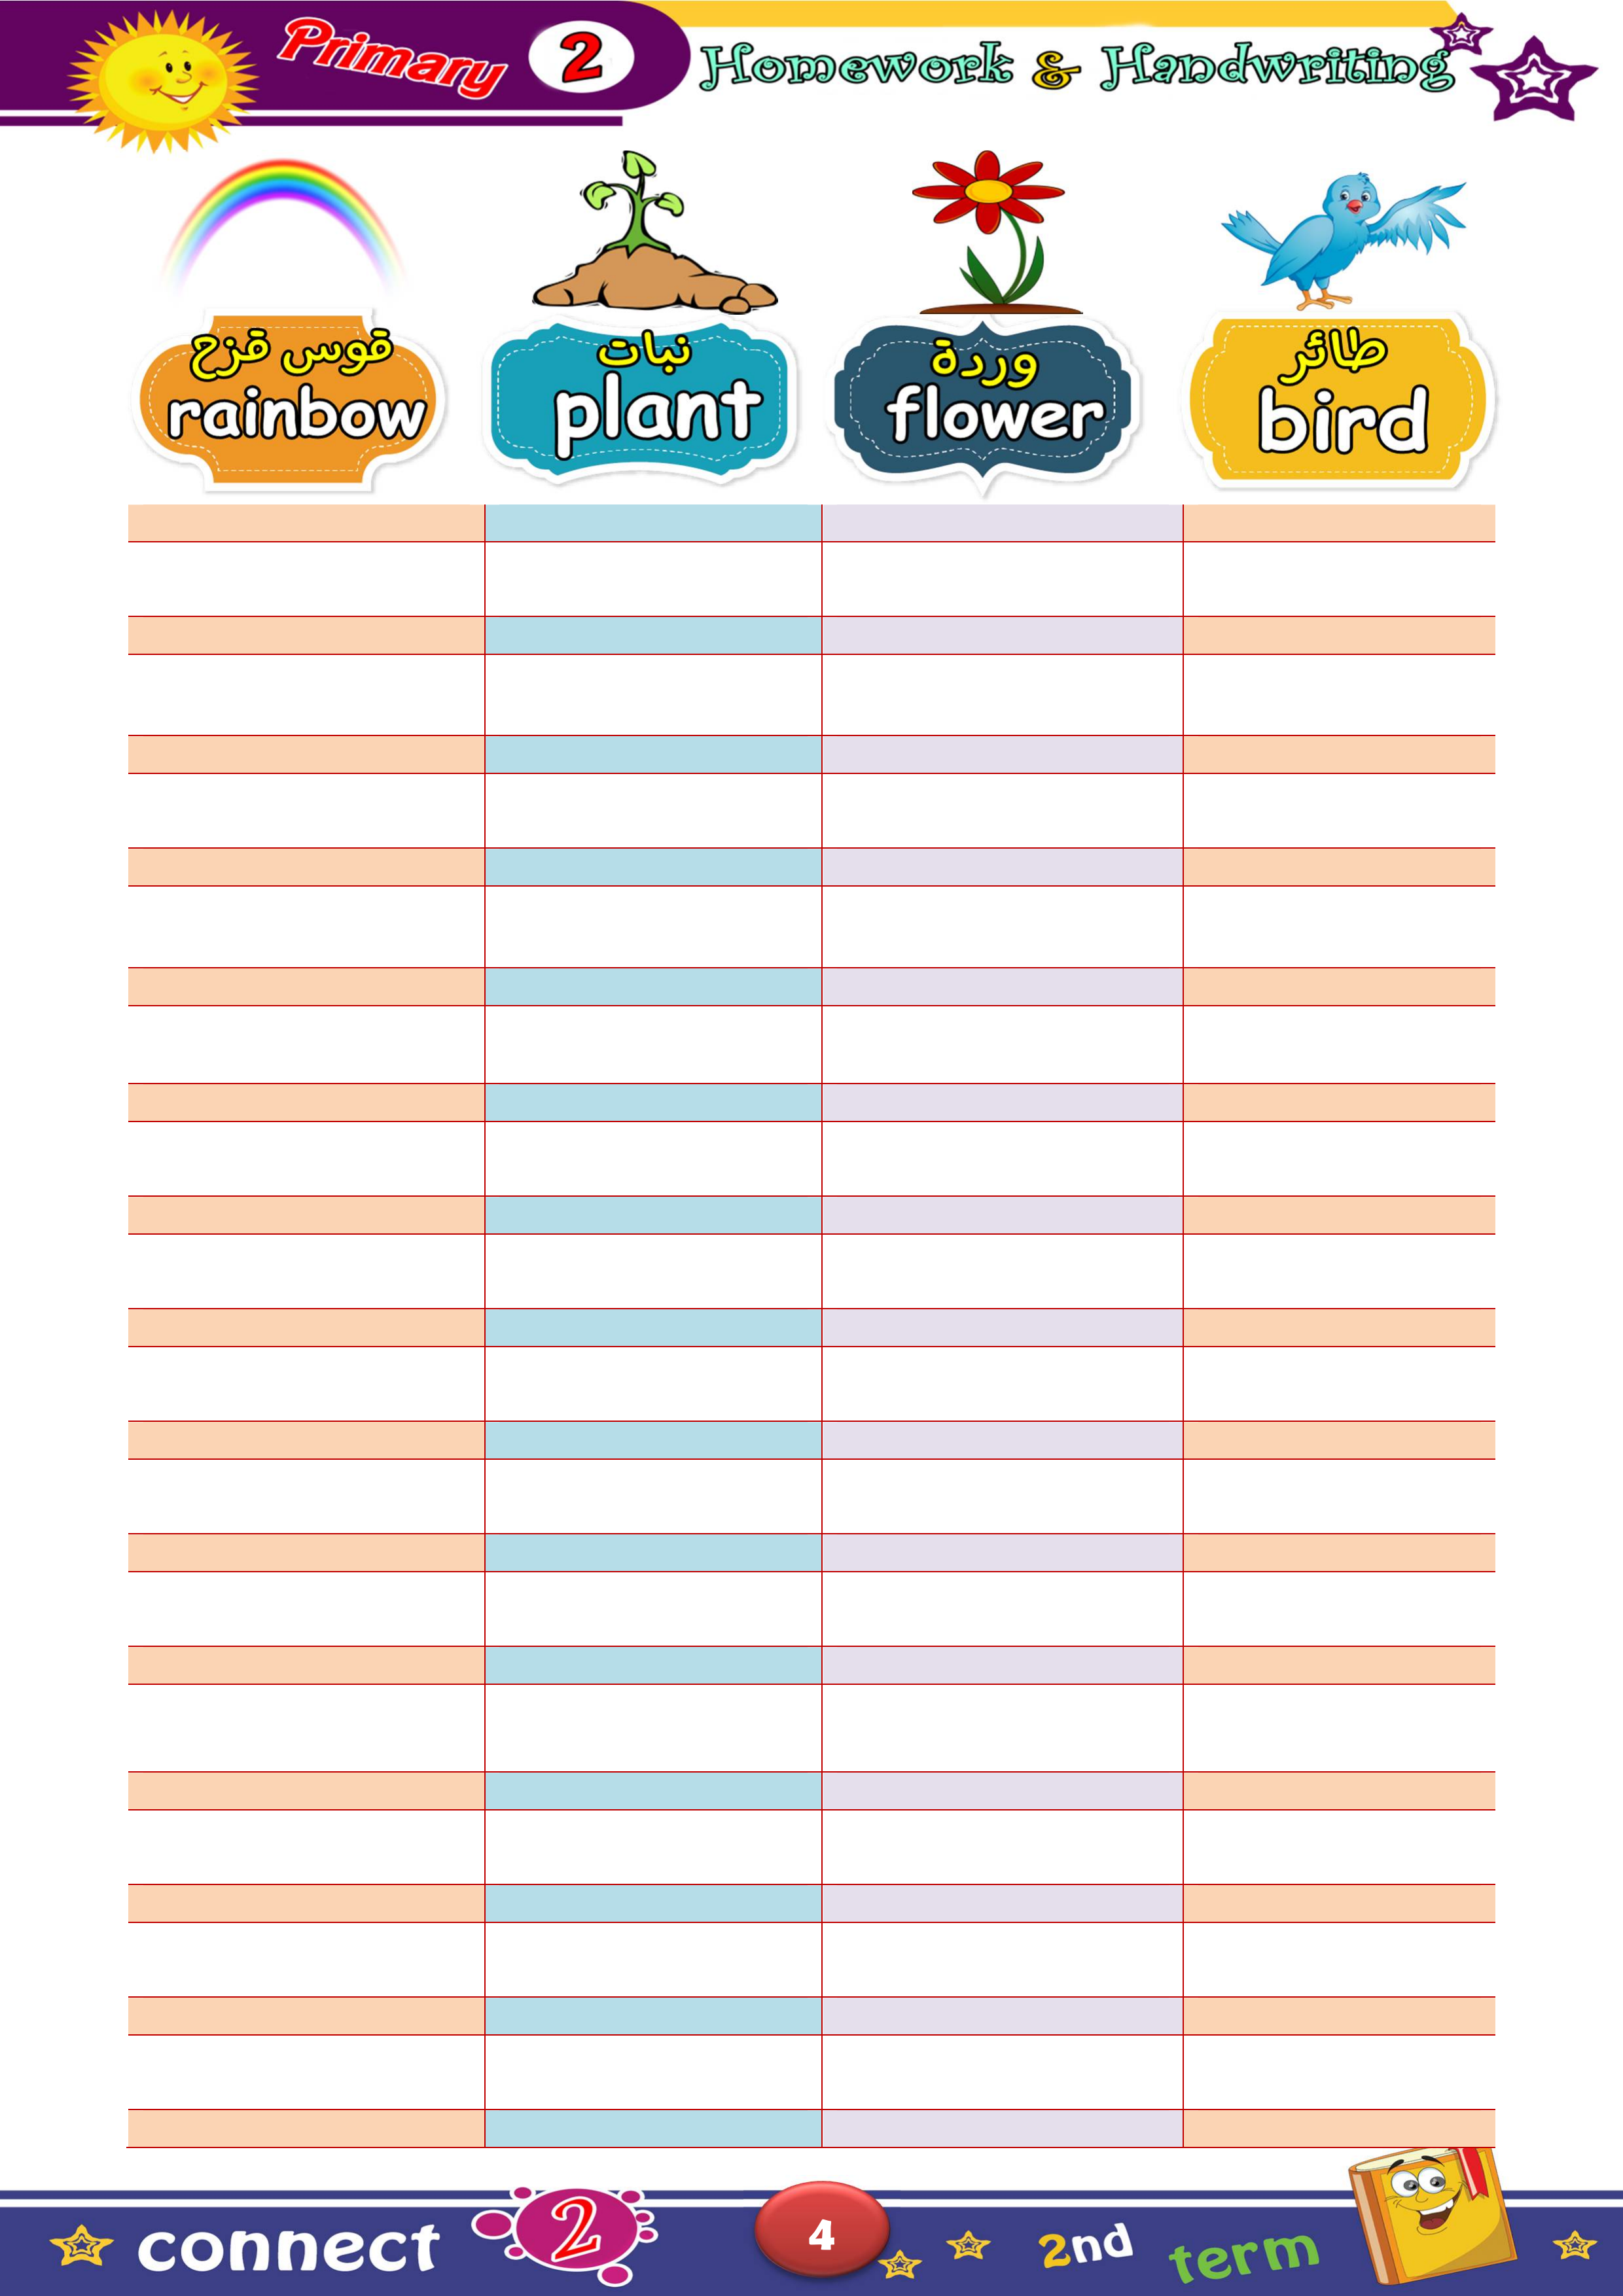 Primary 2 Homework & Handwriting
قوس قزح
rainbow
نبات
plant
وردة
flower
طائر
bird
connect 2 4 2nd term